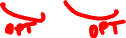 OPT OPT